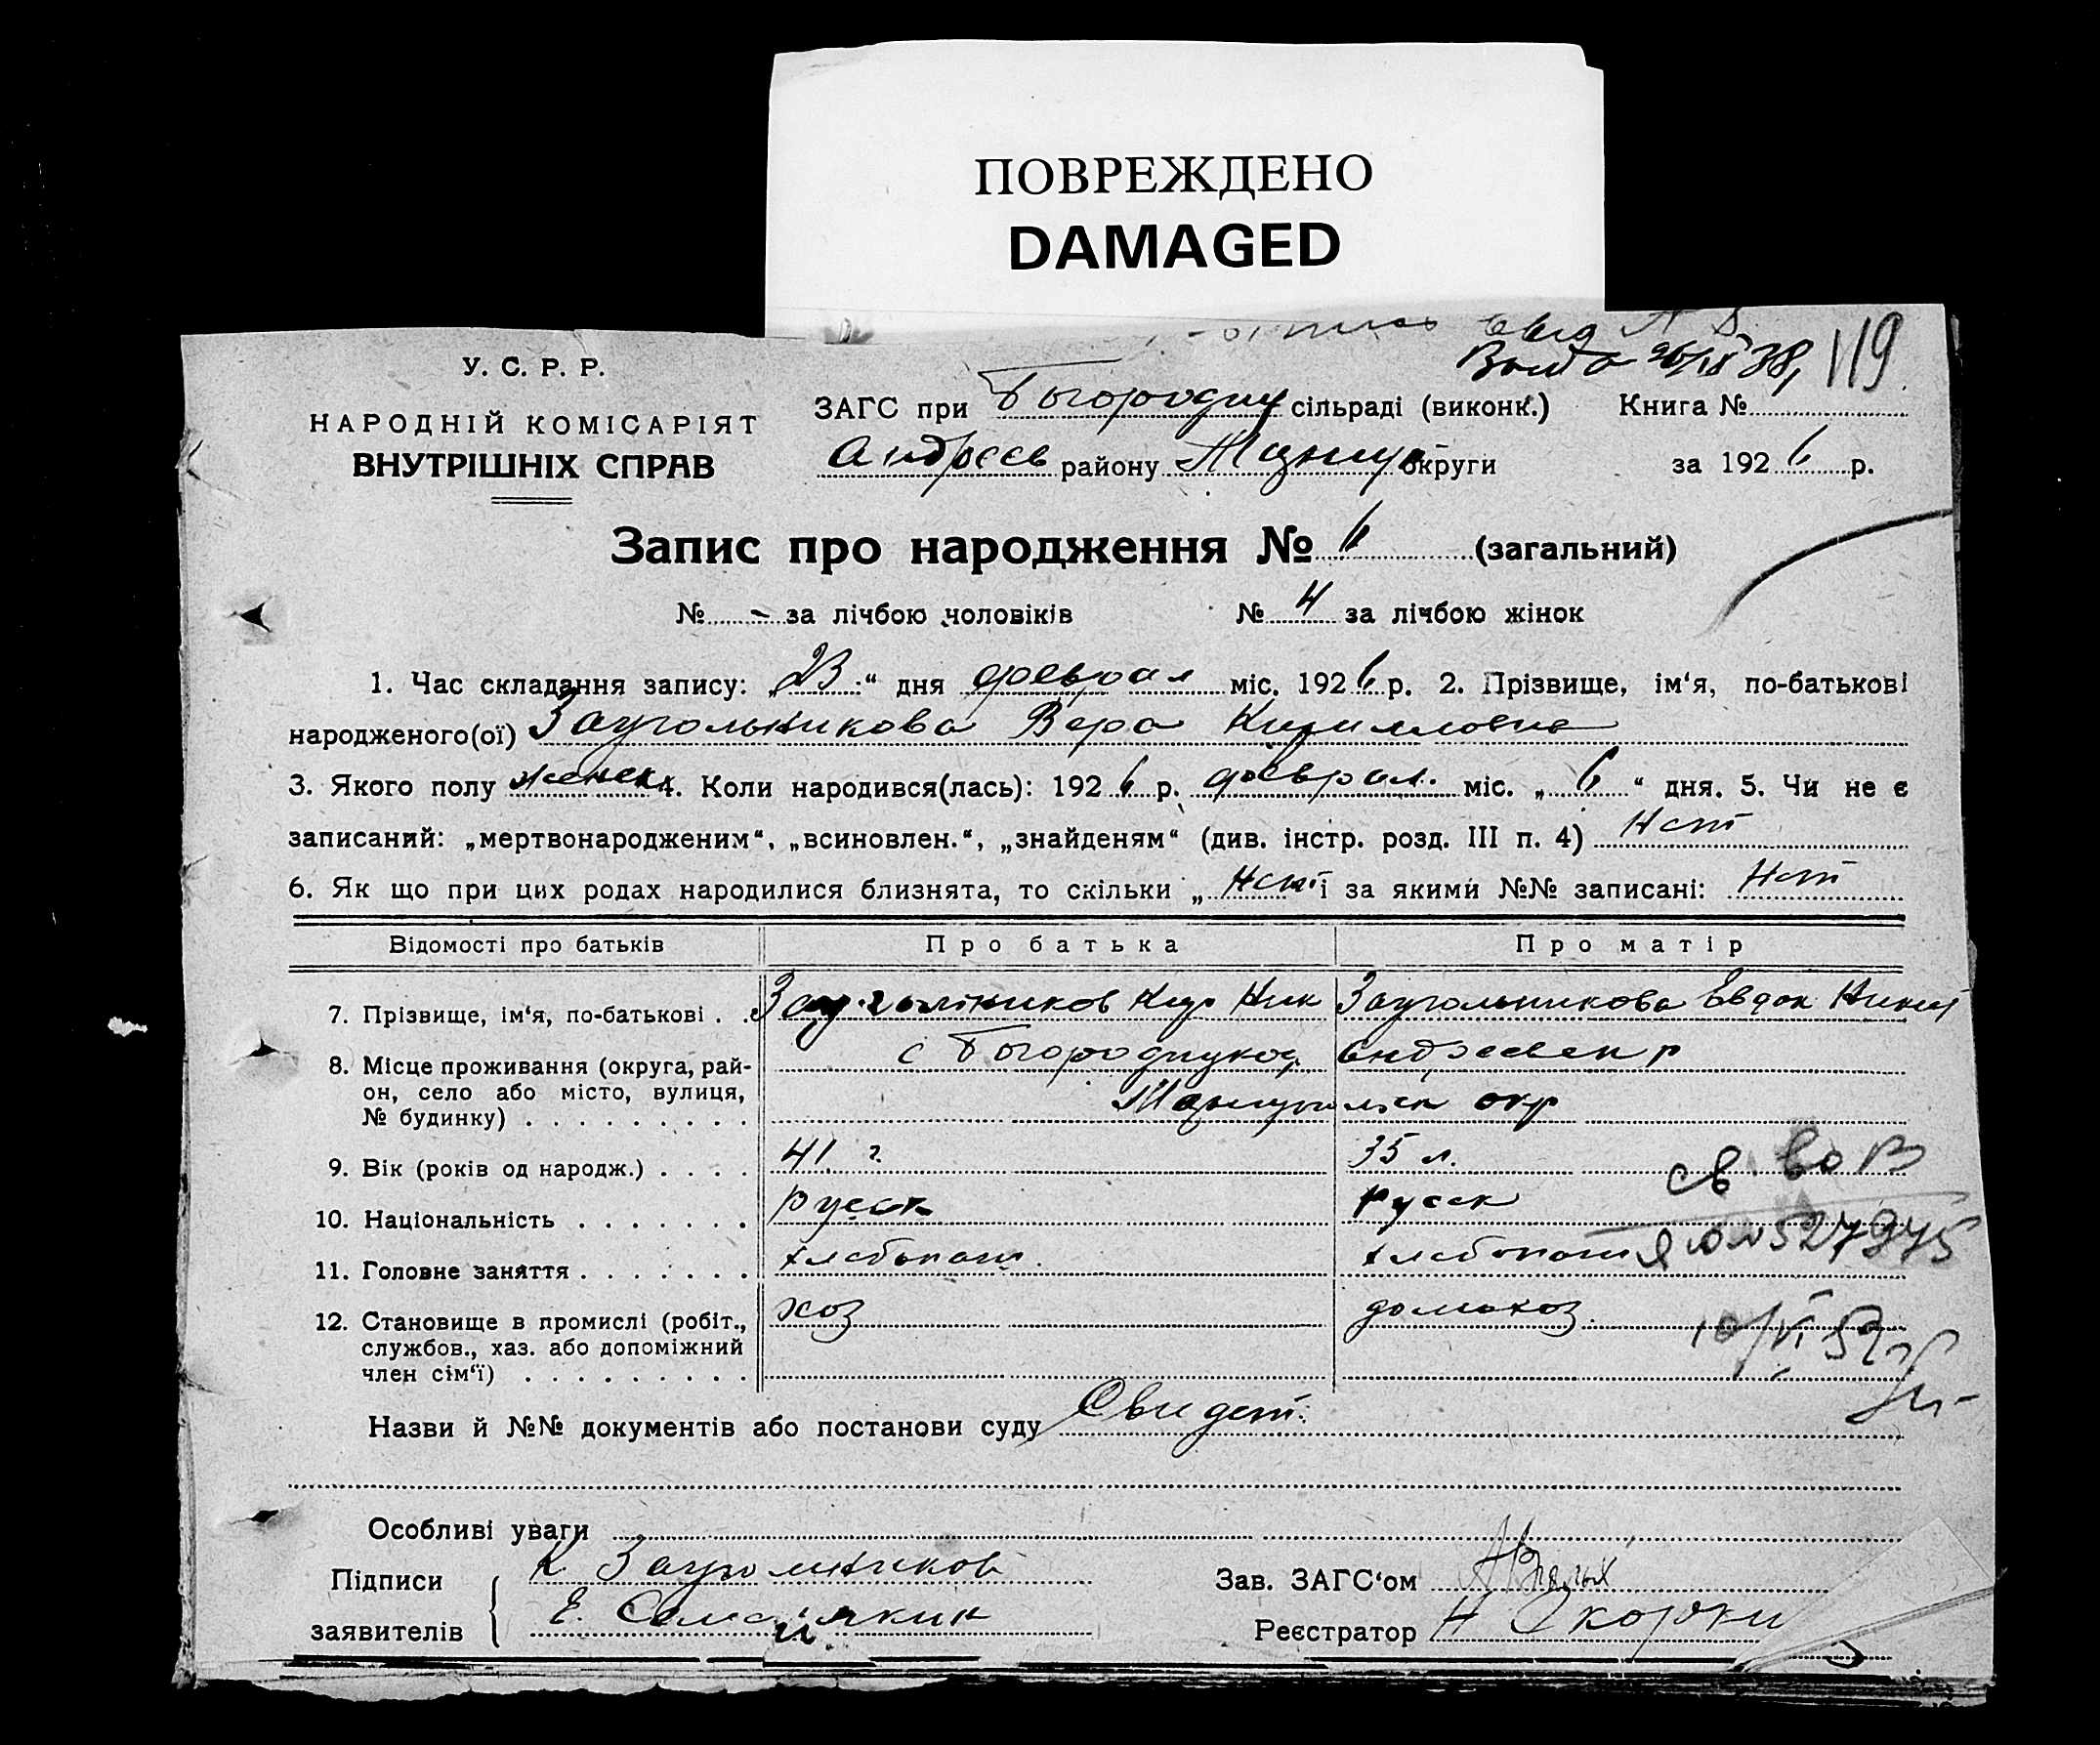 ПОВРЕЖДЕНО
DAMAGED
119
У. С. Р. Р.
НАРОДНІЙ КОМІСАРІЯТ
ВНУТРІШНІХ СПРАВ
ЗАГС при Богородиц сільраді (виконк.) Книга №
Андреев району Мариуп округи за 1926 р.
Запис про народження № 6 (загальний)
№ - за лічбою чоловіків № 4 за лічбою жінок
1. Час складання запису: „23“ дня феврал міс. 1926 р. 2. Прізвище, ім‘я, по-батькові
народженого(ої) Заугольникова Вера Кирилловна
3. Якого полу женск 4. Коли народився(лась): 1926 р. феврал. міс. „6“ дня. 5. Чи не є
записаний: „мертвонародженим“, „всиновлен.“, „знайденям“ (див. інстр. розд. III п. 4) Нет
6. Як що при цих родах народилися близнята, то скільки „ Нет і за якими №№ записані: Нет
Відомості про батьків Про батька Про матір
7. Прізвище, ім‘я, по-батькові . . Заугольников Кир Ник Заугольникова Евдок Никит
8. Місце проживання (округа, рай-
он, село або місто, вулиця,
№ будинку) . . . . . . . . .
с Богородицкое Андреевск р
Мариупольск окр
9. Вік (років од народж.) . . . . 41 г. 35 л.
св. ВоВ
10. Національність . . . . . . . русск русск
527975
11. Головне заняття . . . . . . . хлебопаш. хлебопаш
12. Становище в промислі (робіт.,
службов., хаз. або допоміжний
член сім‘ї) . . . . . . . . .
хоз домахоз.
10/VI 52
Назви й №№ документів або постанови суду Свидет.
Особливі уваги
Підписи
заявителів
К Заугольников
Е.
Зав. ЗАГС‘ом
Реєстратор Н